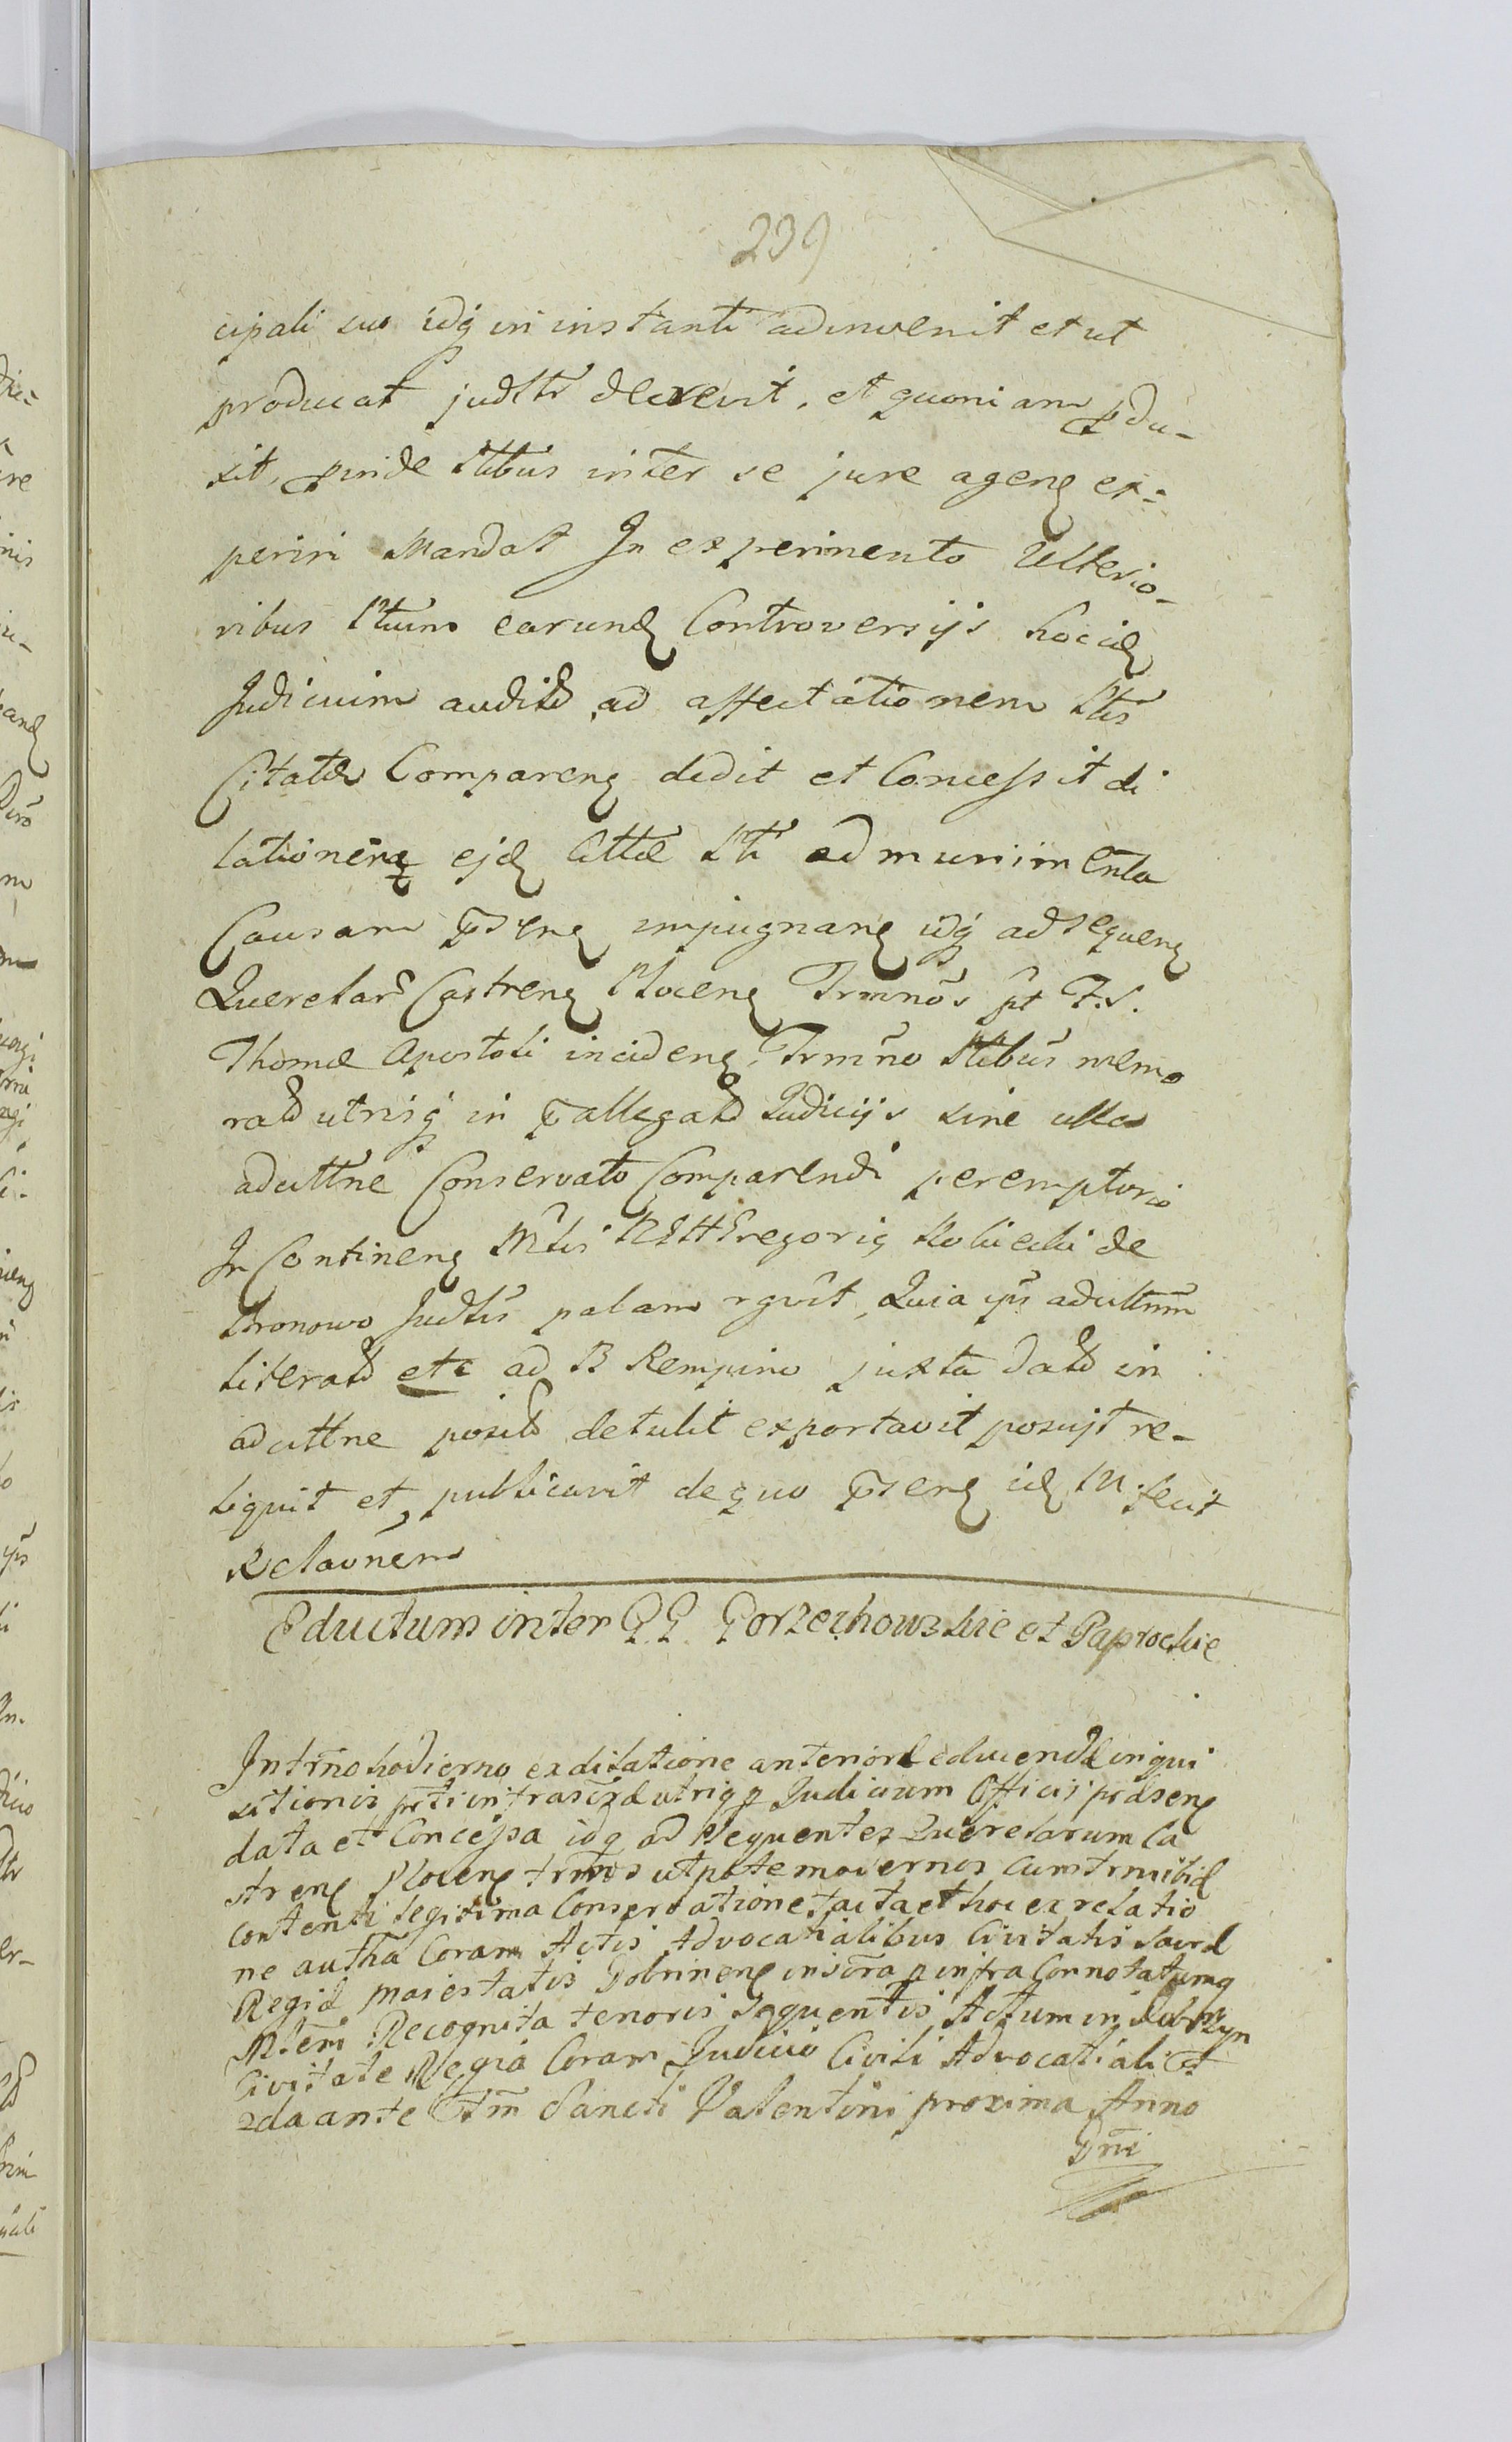 239
cipali suo idq in instanti adinvenit et ut
producat judltr decrevit, et quoniam pdu-
xit, pinde Ptibus inter se jure agen ex=
periri Mandat In experimento Ulterio-
ribus Ptium earund Controversijs hocid
Judicium audits ad affectationem Ptis
Citatæ Comparen dedit et Concessit di
lationem ejd Cittæ Pti ad munimenta
Causam pnsen impugnan idq ad sequen
Querelar Castren Plocen Trmnos pt F. S.
Thomæ Apostoli inciden, Trmno Ptibus memo
ratis utrisq in pallegatis Judicijs sine ulla
adcittne Conservato Comparendi peremptorio
In Continen Mtris Gregorig de
Judlis palam rgvit, Quia ijs adcittnm
literatis etc ad B Rempino juxta datis in
adcittne positis detulit exportavit posujt re-
liquit et publicavit dequo pnsen id M. fecit
Relaonem
Eductum inter GG. Gorzechowskie et Paprockie
In trno hodierno ex dilatione anteriori educendæ inqui
sitionis pti infrascrd utriq p Judicium Officij pndsen
data et Concessa idq ad Sequentes Querelarum Ca
stren Plocen trmnos utpote modernos cum trmibid
contenti legitima Conservatione tacta et hoc ex relatio
ne autha Coram Actis Advocatialibus Civitatis Sacræ
Regiæ Maiestatis Dobrinen inscra p infra Connotatumq
Mtem Recognita tenoris sequentis Actum in Dobrzyn
Civitate Regia Coram Judicio Civili Advocatiali
2da ante Ftm Sancti Valentini proxima Anno
Dni